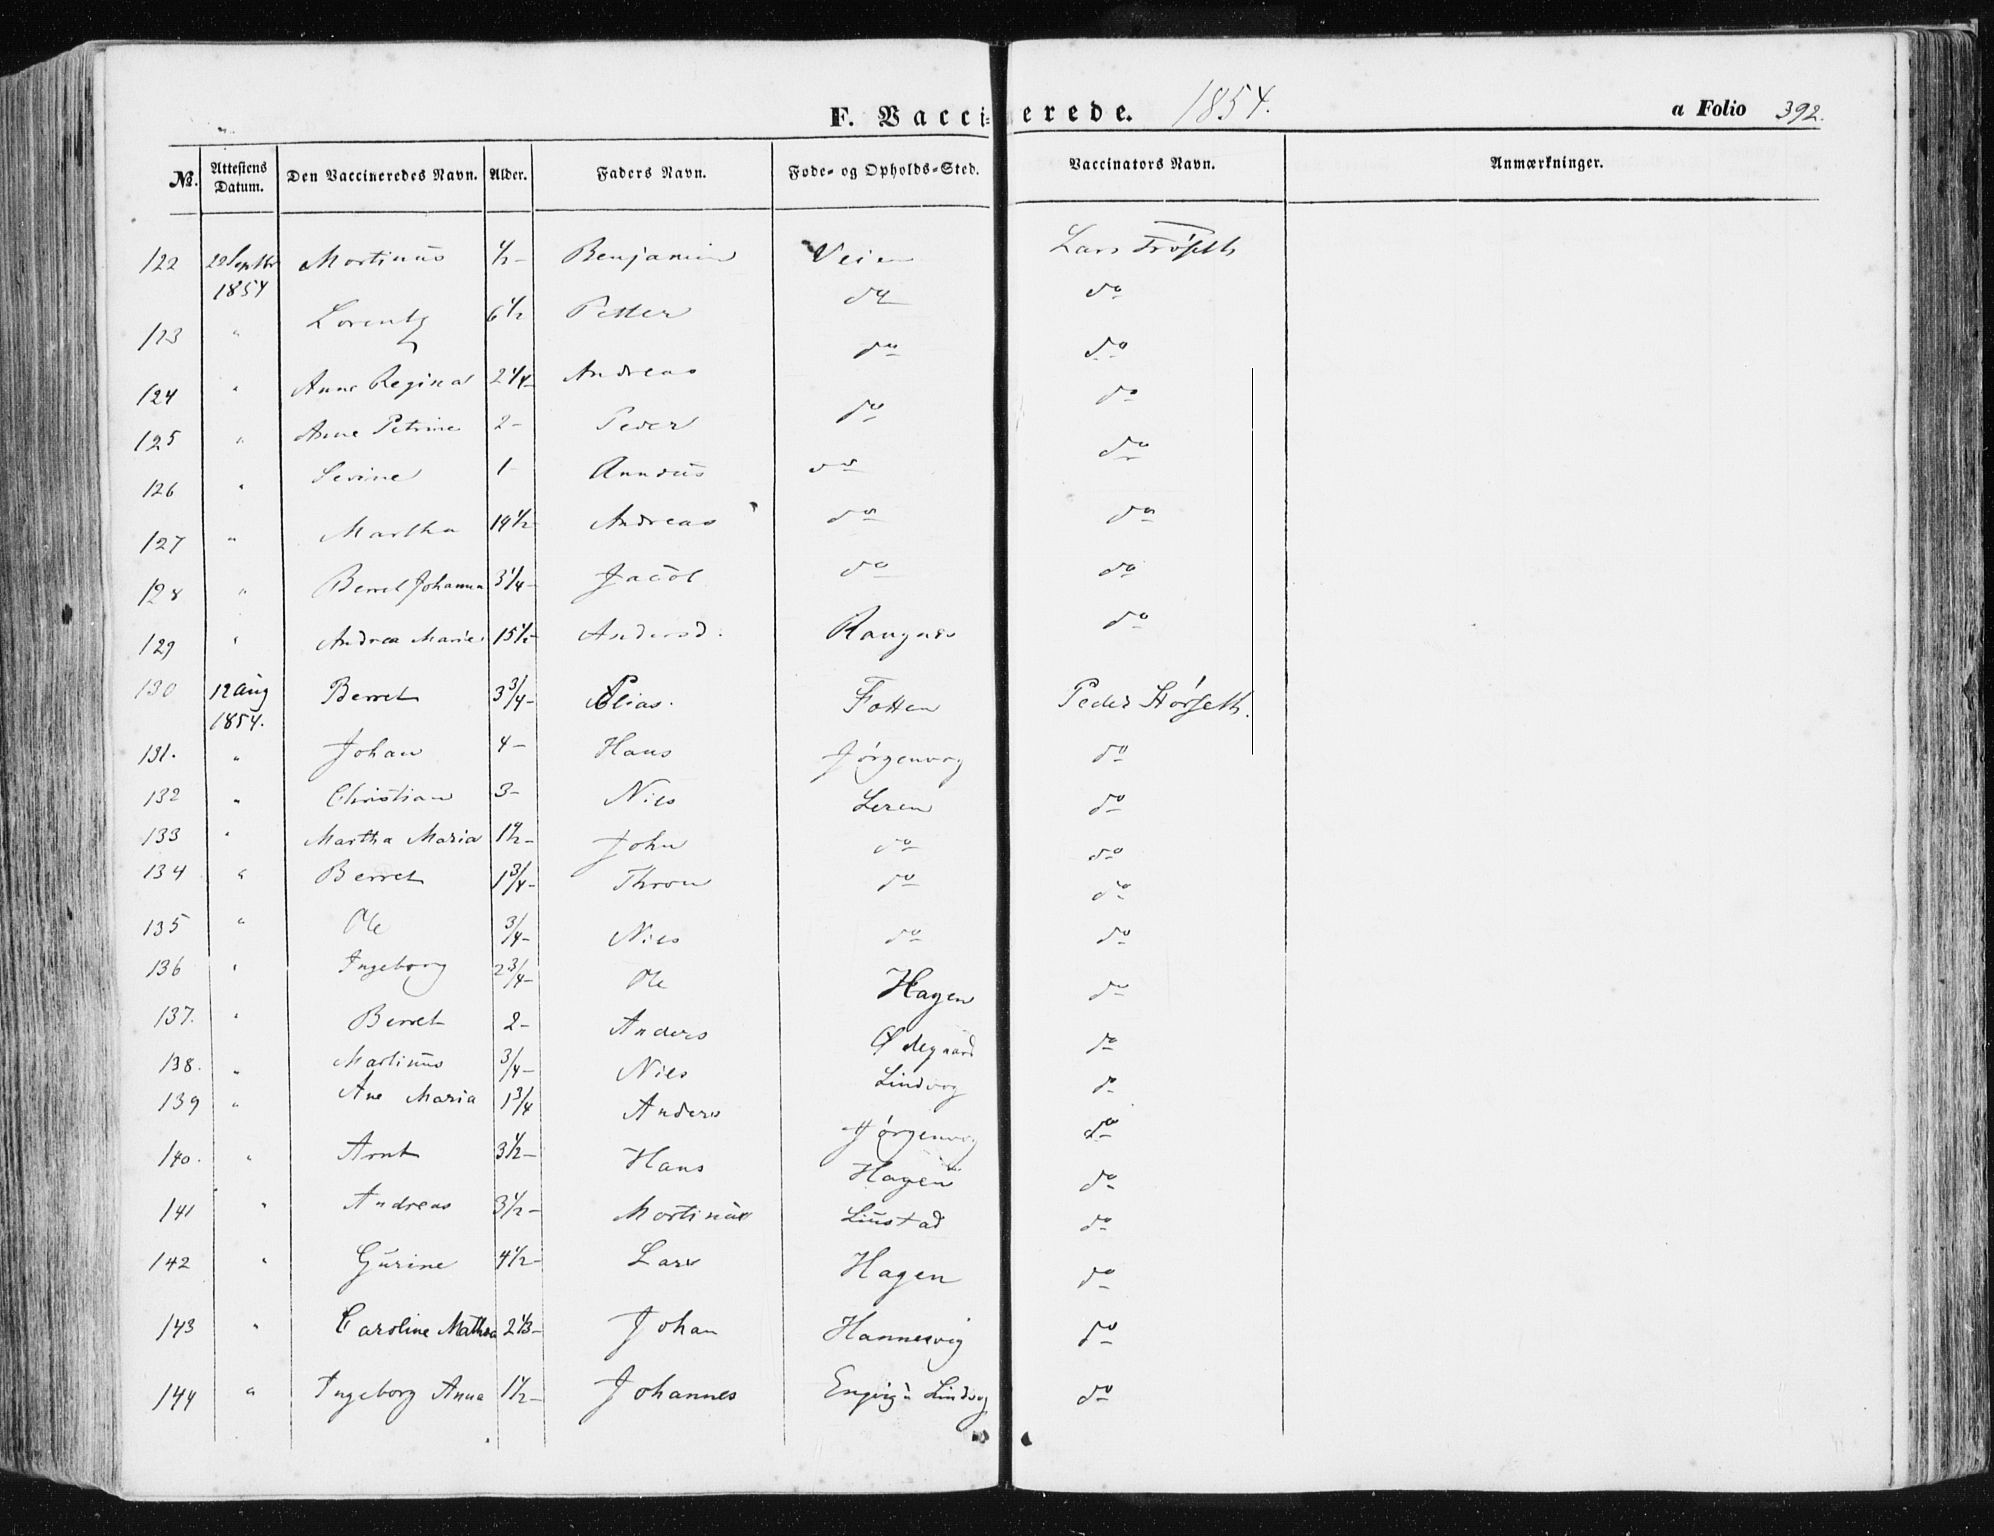 F. Vaccinerede. 1854. a Folio 392.
No. Attestens Datum. Den Vaccineredes Navn. Alder. Faders Navn. Føde- og Opholds-Sted. Vaccinators Navn. Anmærkninger.
122 22 Septbr 1854 Mortinus 1/2 - Benjamin Veien Lars
123 " Lorentz 6 1/2 Petter do do
124 " Anne Regina 2 1/4 - Andreas do do
125 " Anne Petrine 2 - Peder do do
126 " Serine 1 - do do
127 " Martha 19 1/2 - Andreas do do
128 " Berret Johanna 3 1/4 - Jacob do do
129 " Andrea Marie 15 1/2 - Andersd. Rangnes do
130 12 Aug 1854. Berret 3 3/4 - Elias. Fotten Peder Størseth.
131. " Johan 4 - Hans Jørgenvog do
132 " Christian 3 - Nils Leren do
133 " Martha Maria 1 1/2 - John do do
134 " Berret 1 3/4 - Thron do do
135 " Ole 3/4 - Nils do do
136 " Ingeborg 2 3/4 - Ole Hagen do
137. " Berret 2 - Anders Ødegaard do
138. " Martinus 3/4 - Nils Lindvog do
139 " Ane Maria 1 3/4 Anders Jørgenvog do
140. " Arnt 3 1/2 - Hans Hagen do
141 " Andreas 3 1/2 - Mortinus Liustad do
142 " Gurine 4 1/2 - Lars Hagen do
143 " Caroline Mathea 2 1/3 - Johan Hannesvig do
144 " Ingeborg Anna 1 1/2 - Johannes Engvig u Lindvog do